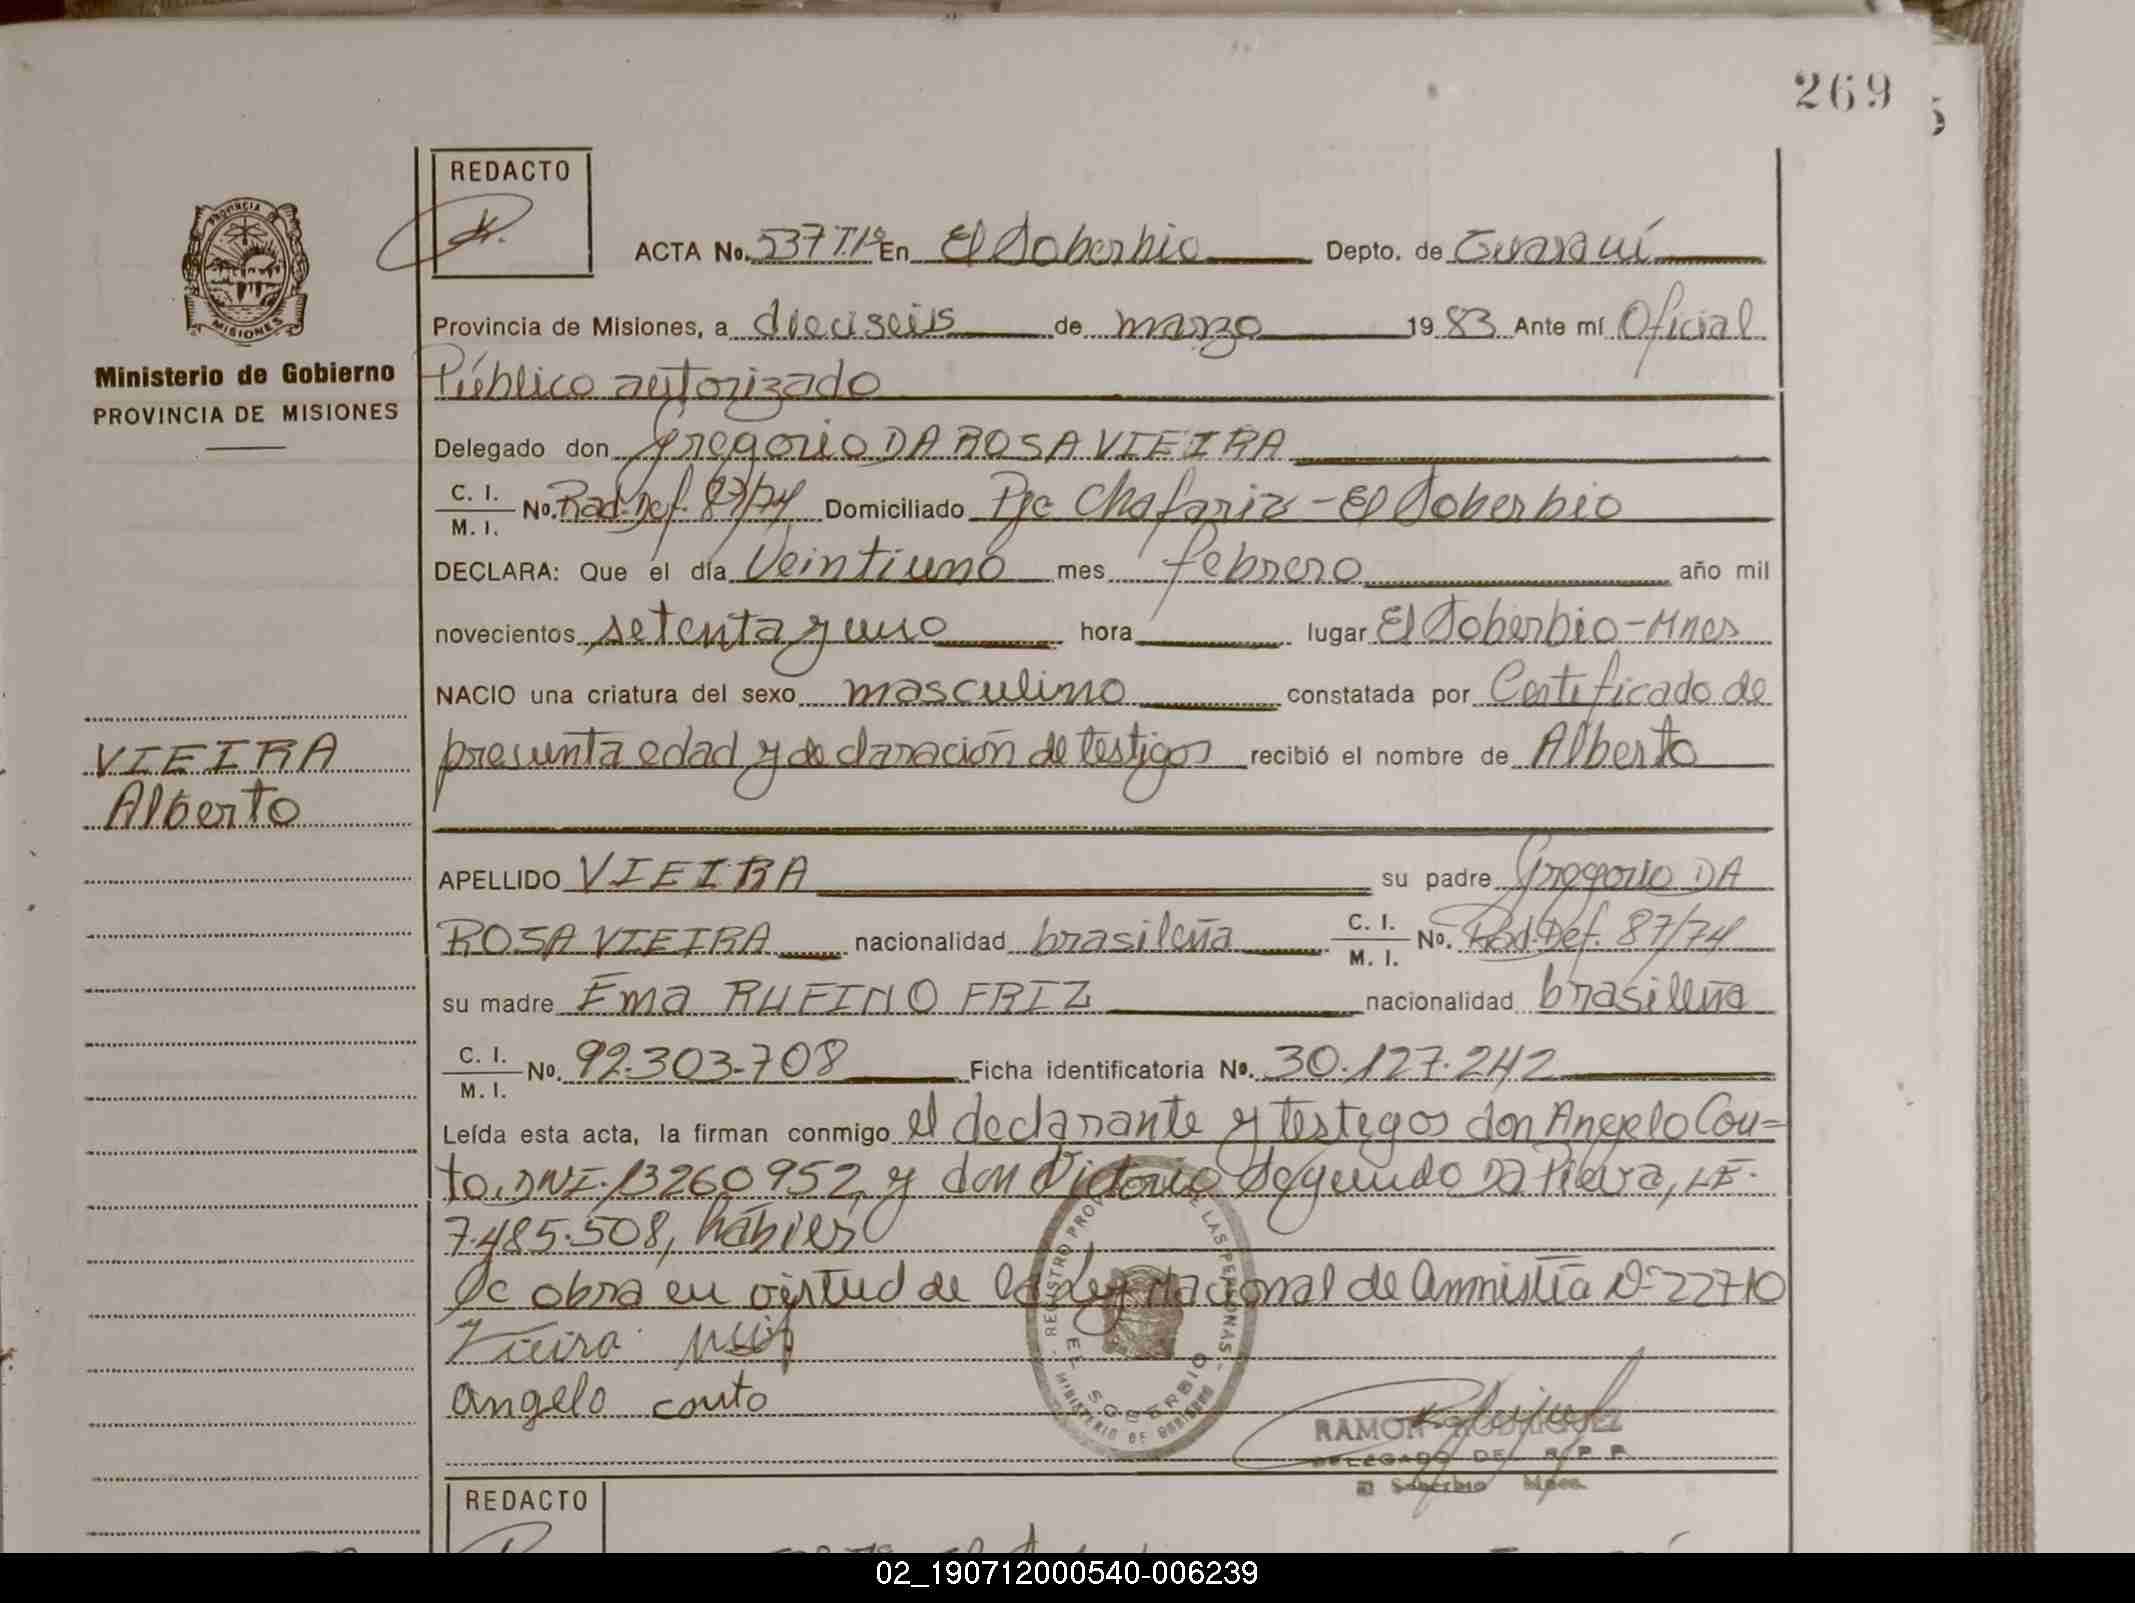 269
REDACTO
ACTA No. 537 T1º En El Soberbio Depto. de Guaraní
Provincia de Misiones, a dieciseis de marzo 1983 Ante mí Oficial
Público autorizado
Ministerio de Gobierno
PROVINCIA DE MISIONES
Delegado don Gregorio DA ROSA VIEIRA
C. I.
M. I. No. Rad. Def. 87/74 Domiciliado Pje Chafariz - El Soberbio
DECLARA: Que el día Veintiuno mes febrero año mil
novecientos setenta y uno hora lugar El Soberbio - Mnes
NACIO una criatura del sexo masculino constatada por Certificado de
presunta edad y declaración de testigos recibió el nombre de Alberto
VIEIRA
Alberto
APELLIDO VIEIRA su padre Gregorio DA
ROSA VIEIRA nacionalidad brasileña C. I.
M. I. No. Rad. Def. 87/74
su madre Ema RUFINO FRIZ nacionalidad brasileña
C. I.
M. I. No. 92.303.708 Ficha identificatoria No. 30.127.242
Leída esta acta, la firman conmigo el declarante y testigos don Angelo Cou=
to, DNI. 13260952, y don Victorio Segundo Da Pieva, LE.
7.485.508, hábiles
Se obra en virtud de la Ley Nacional de Amnistía Nº 22710
Vieira
angelo couto
REGISTRO PROV DE LAS PERSONAS
EL SOBERBIO
MINISTERIO DE GOBIERNO
RAMON RODRIGUEZ
DELEGADO DE R P P
El Soberbio Mnes
REDACTO
02_190712000540-006239